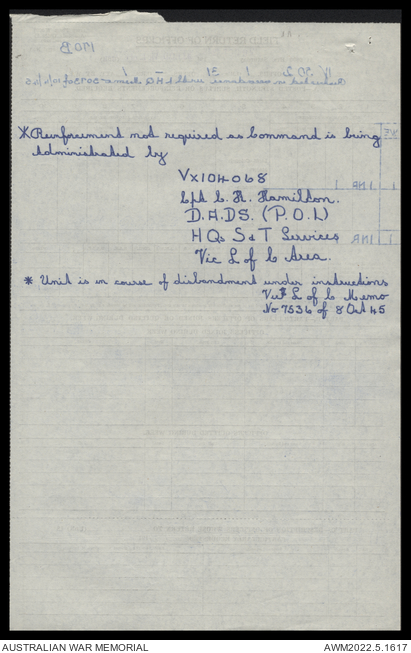 190B
* Reinforcement not required as Command is being
Administrated by
VX104068
Cpt C. R. Hamilton.
D.A.D.S. (P.O.L)
HQs S & T Services
Vic L of C Area.
* Unit is in course of disbandment under instructions
Vic L of C Memo
No 7536 of 8 Oct 45
AUSTRALIAN WAR MEMORIAL
AWM2022.5.1617